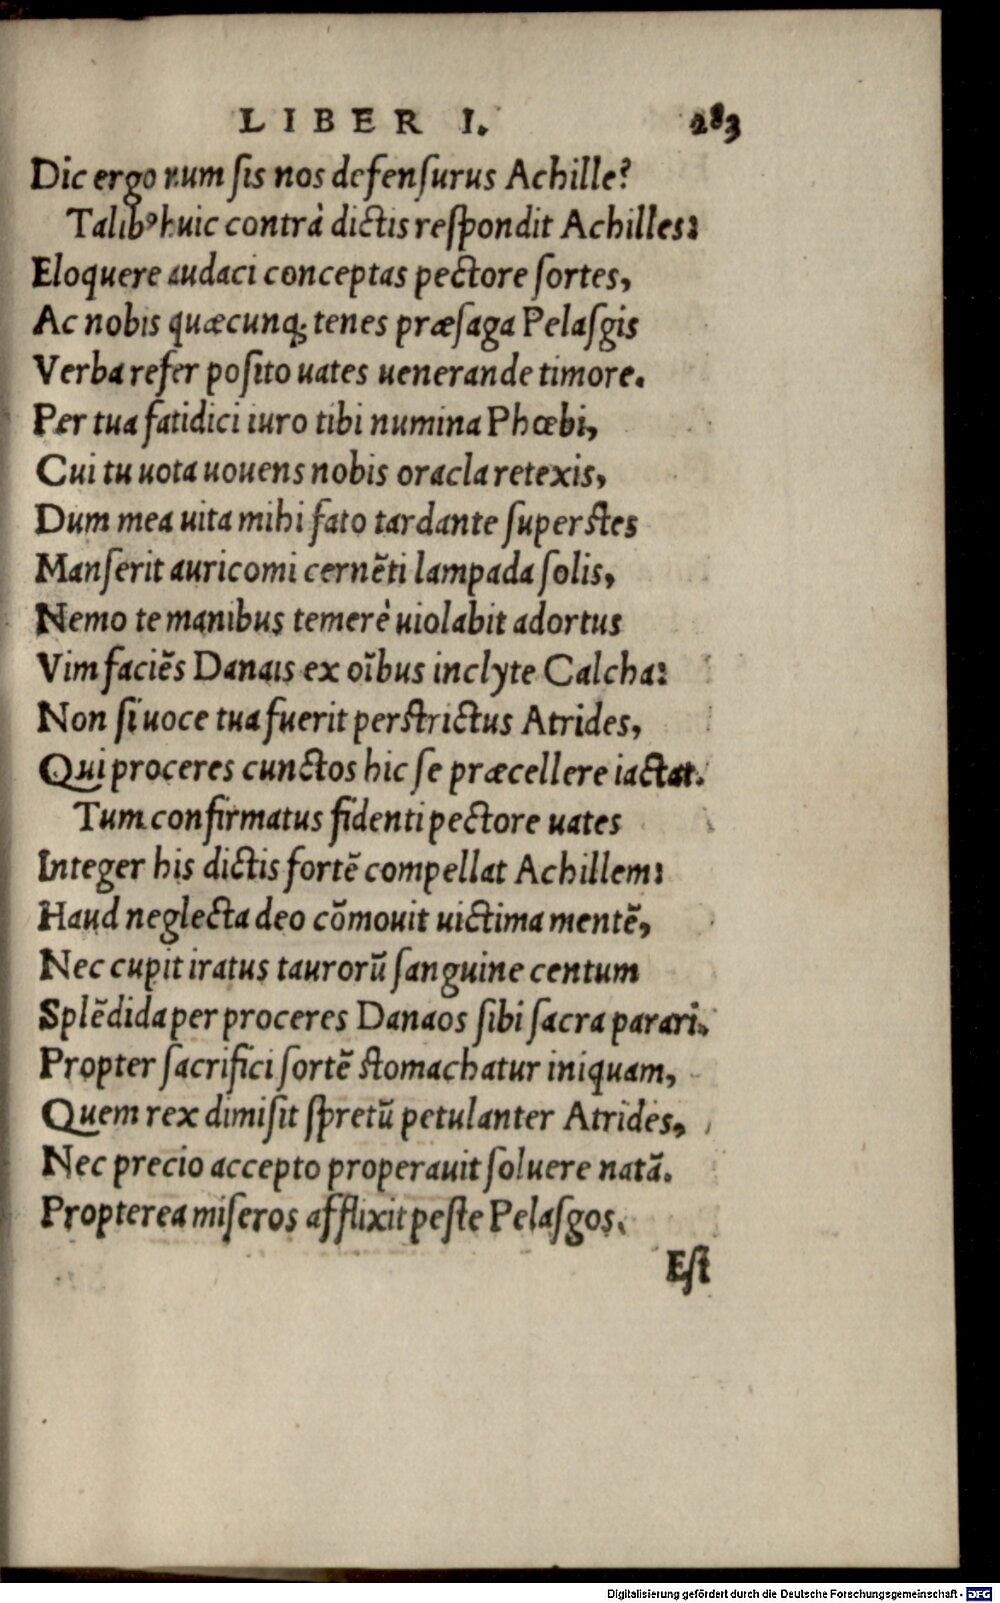 LIBER I. 283
Dic ergo num ſis nos defenſurus Achille?
Talibꝰ huic contrà dictis reſpondit Achilles:
Eloquere audaci conceptas pectore ſortes,
Ac nobis quæcunq; tenes præſaga Pelaſgis
Verba refer poſito uates uenerande timore.
Per tua fatidici iuro tibi numina Phœbi,
Cui tu uota uouens nobis oracla retexis,
Dum mea uita mihi fato tardante ſuperſtes
Manſerit auricomi cernẽti lampada ſolis,
Nemo te manibus temerè uiolabit adortus
Vim faciẽs Danais ex oĩbus inclyte Calcha:
Non ſi uoce tua fuerit perſtrictus Atrides,
Qui proceres cunctos hic ſe præcellere iactat.
Tum confirmatus fidenti pectore uates
Integer his dictis fortẽ compellat Achillem:
Haud neglecta deo cõmouit uictima mentẽ,
Nec cupit iratus taurorũ ſanguine centum
Splẽdida per proceres Danaos ſibi ſacra parari.
Propter ſacrifici ſortẽ ſtomachatur iniquam,
Quem rex dimiſit ſpretũ petulanter Atrides,
Nec precio accepto properauit ſoluere natã.
Propterea miſeros afflixit peſte Pelaſgos.
Eſt
Digitalisierung gefördert durch die Deutsche Forschungsgemeinschaft - DFG